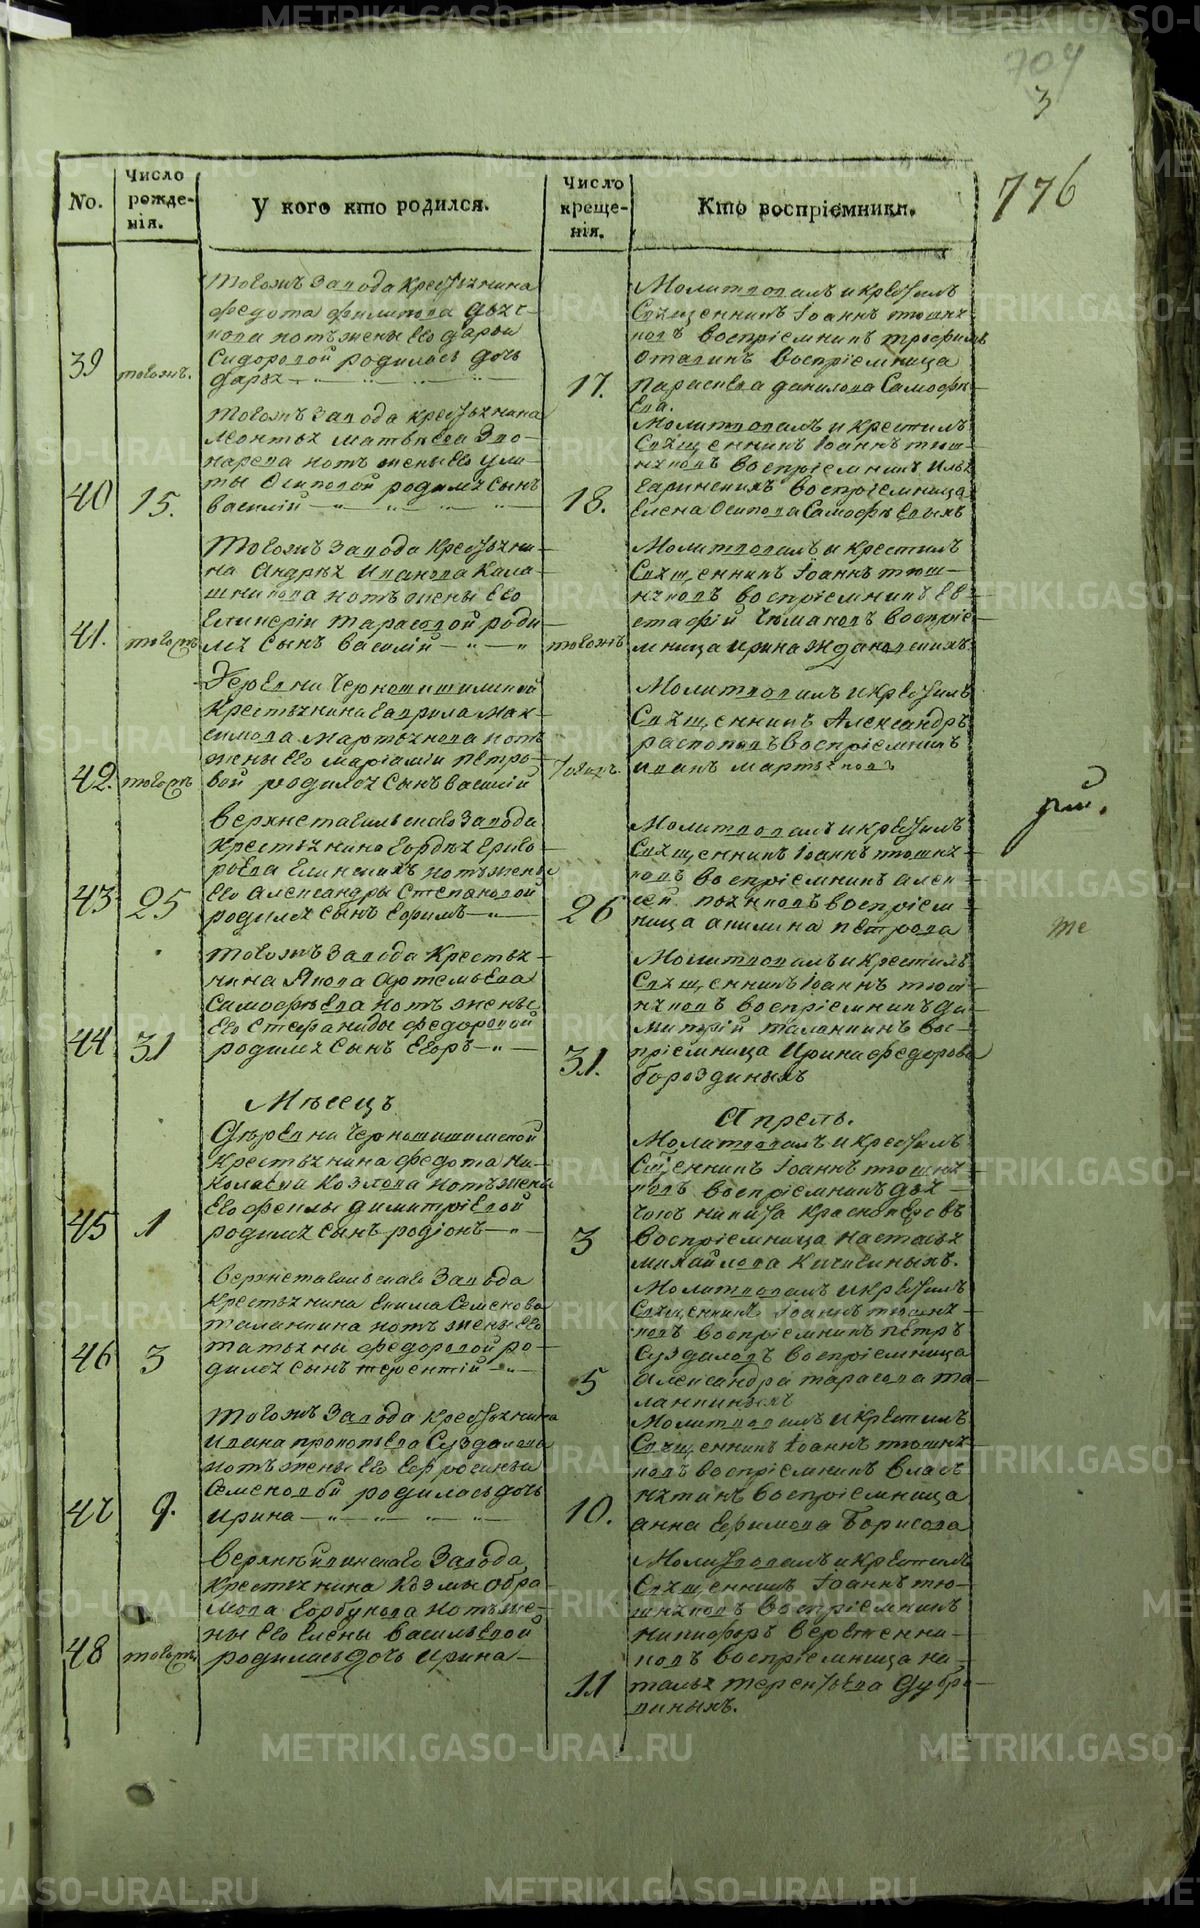 704
3
776
No.
Число рожденія.
У кого кто родился.
Число крещенія.
Кто воспріемники.
39
тогожъ.
Тогожъ Завода крестьянина
Федота Филипова Дьяч-
кова новъ жены его Дарьи
Сидоровой родилась дочь
Дарья
17.
Молитвовалъ и крестилъ
Священникъ Іоаннъ Тюшня-
ковъ воспріемникъ Трофимъ
воспріемница
Параскева Данилова Самофѣ-
ева.
40
15.
Тогожъ Завода крестьянина
Леонтья Матвѣева Зво-
нарева отъ жены его Ули-
ты Осиповой родился сынъ
Василій
18.
Молитвовалъ и крестилъ
Священникъ Іоаннъ Тюш-
няковъ воспріемникъ Илья
Гаринскихъ воспріемница
Елена Осипова Самофѣевыхъ
41.
тогожъ
Тогожъ Завода Крестьяни-
на Андрея Иванова Кала-
шникова отъ жены его
Гликеріи Тарасовой роди-
лся сынъ Василій
тогожъ
Молитвовалъ и крестилъ
Священникъ Іоаннъ Тюш-
няковъ воспріемникъ Ев-
стафій воспріе-
мница Ирина Ждановскихъ.
42.
тогожъ
Деревни Черношишимской
Крестьянина Гаврила Мак-
симова Мартьянова отъ
жены его Маріамии Петро-
вой родился сынъ Василій
тогожъ
Молитвовалъ и крестилъ
Священникъ Александръ
Распоповъ воспріемникъ
Иванъ Мартьяновъ
43
25
Верхнетагильскаго Завода
Крестьянина Гордея Григо-
рьева Елинскихъ отъ жены
его Александры Степановой
родился сынъ Ефимъ
26
Молитвовалъ и крестилъ
Священникъ Іоаннъ Тюшня-
ковъ воспріемникъ Алек-
сей воспріем-
ница Акилина Петрова
44
31
Тогожъ Завода Крестья-
нина Якова Артемьева
Самофѣева отъ жены
его Стефаниды Федоровой
родился сынъ Егоръ
31.
Молитвовалъ и крестилъ
Священникъ Іоаннъ Тюш-
няковъ воспріемникъ Ди-
митрій Таланкинъ вос-
пріемница Ирина Федорова
Бороздиныхъ
Мѣсецъ
Апрель.
45
1
Деревни Черношишимской
Крестьянина Федота Ни-
колаева Козлова отъ жены
его Феклы Димитріевой
родился сынъ Родіонъ
3
Молитвовалъ и крестилъ
Сщенникъ Іоаннъ Тюшня-
ковъ воспріемникъ Дья-
чокъ Никита Краснопѣровъ
воспріемница Настасья
Михайлова Кичигиныхъ.
46
3
Верхнетагильскаго Завода
Крестьянина Екима Семенова
Таланкина отъ жены его
Татьяны Федоровой ро-
дился сынъ Терентій
5
Молитвовалъ и крестилъ
Священникъ Іоаннъ Тюшня-
ковъ воспріемникъ Петръ
Суздаловъ воспріемница
Александра Тарасова Та-
ланкиныхъ
47
9.
Тогожъ Завода Крестьянина
Ивана Прокопьева Суздалова
отъ жены его Ефросиньи
Семеновой родилась дочь
Ирина
10.
Молитвовалъ и крестилъ
Священникъ Іоаннъ Тюшня-
ковъ воспріемникъ Власъ
воспріемница
Анна Ефимова Борисова
48
тогожъ
Верхнейвинскаго Завода
Крестьянина Козмы Абра-
мова Горбунова отъ же-
ны его Елены Васильевой
родилась дочь Ирина
11
Молитвовалъ и крестилъ
Священникъ Іоаннъ Тю-
шняковъ воспріемникъ
Никифоръ Веретенни-
ковъ воспріемница На-
талья Терентьева Дубро-
виныхъ.
METRIKI.GASO-URAL.RU